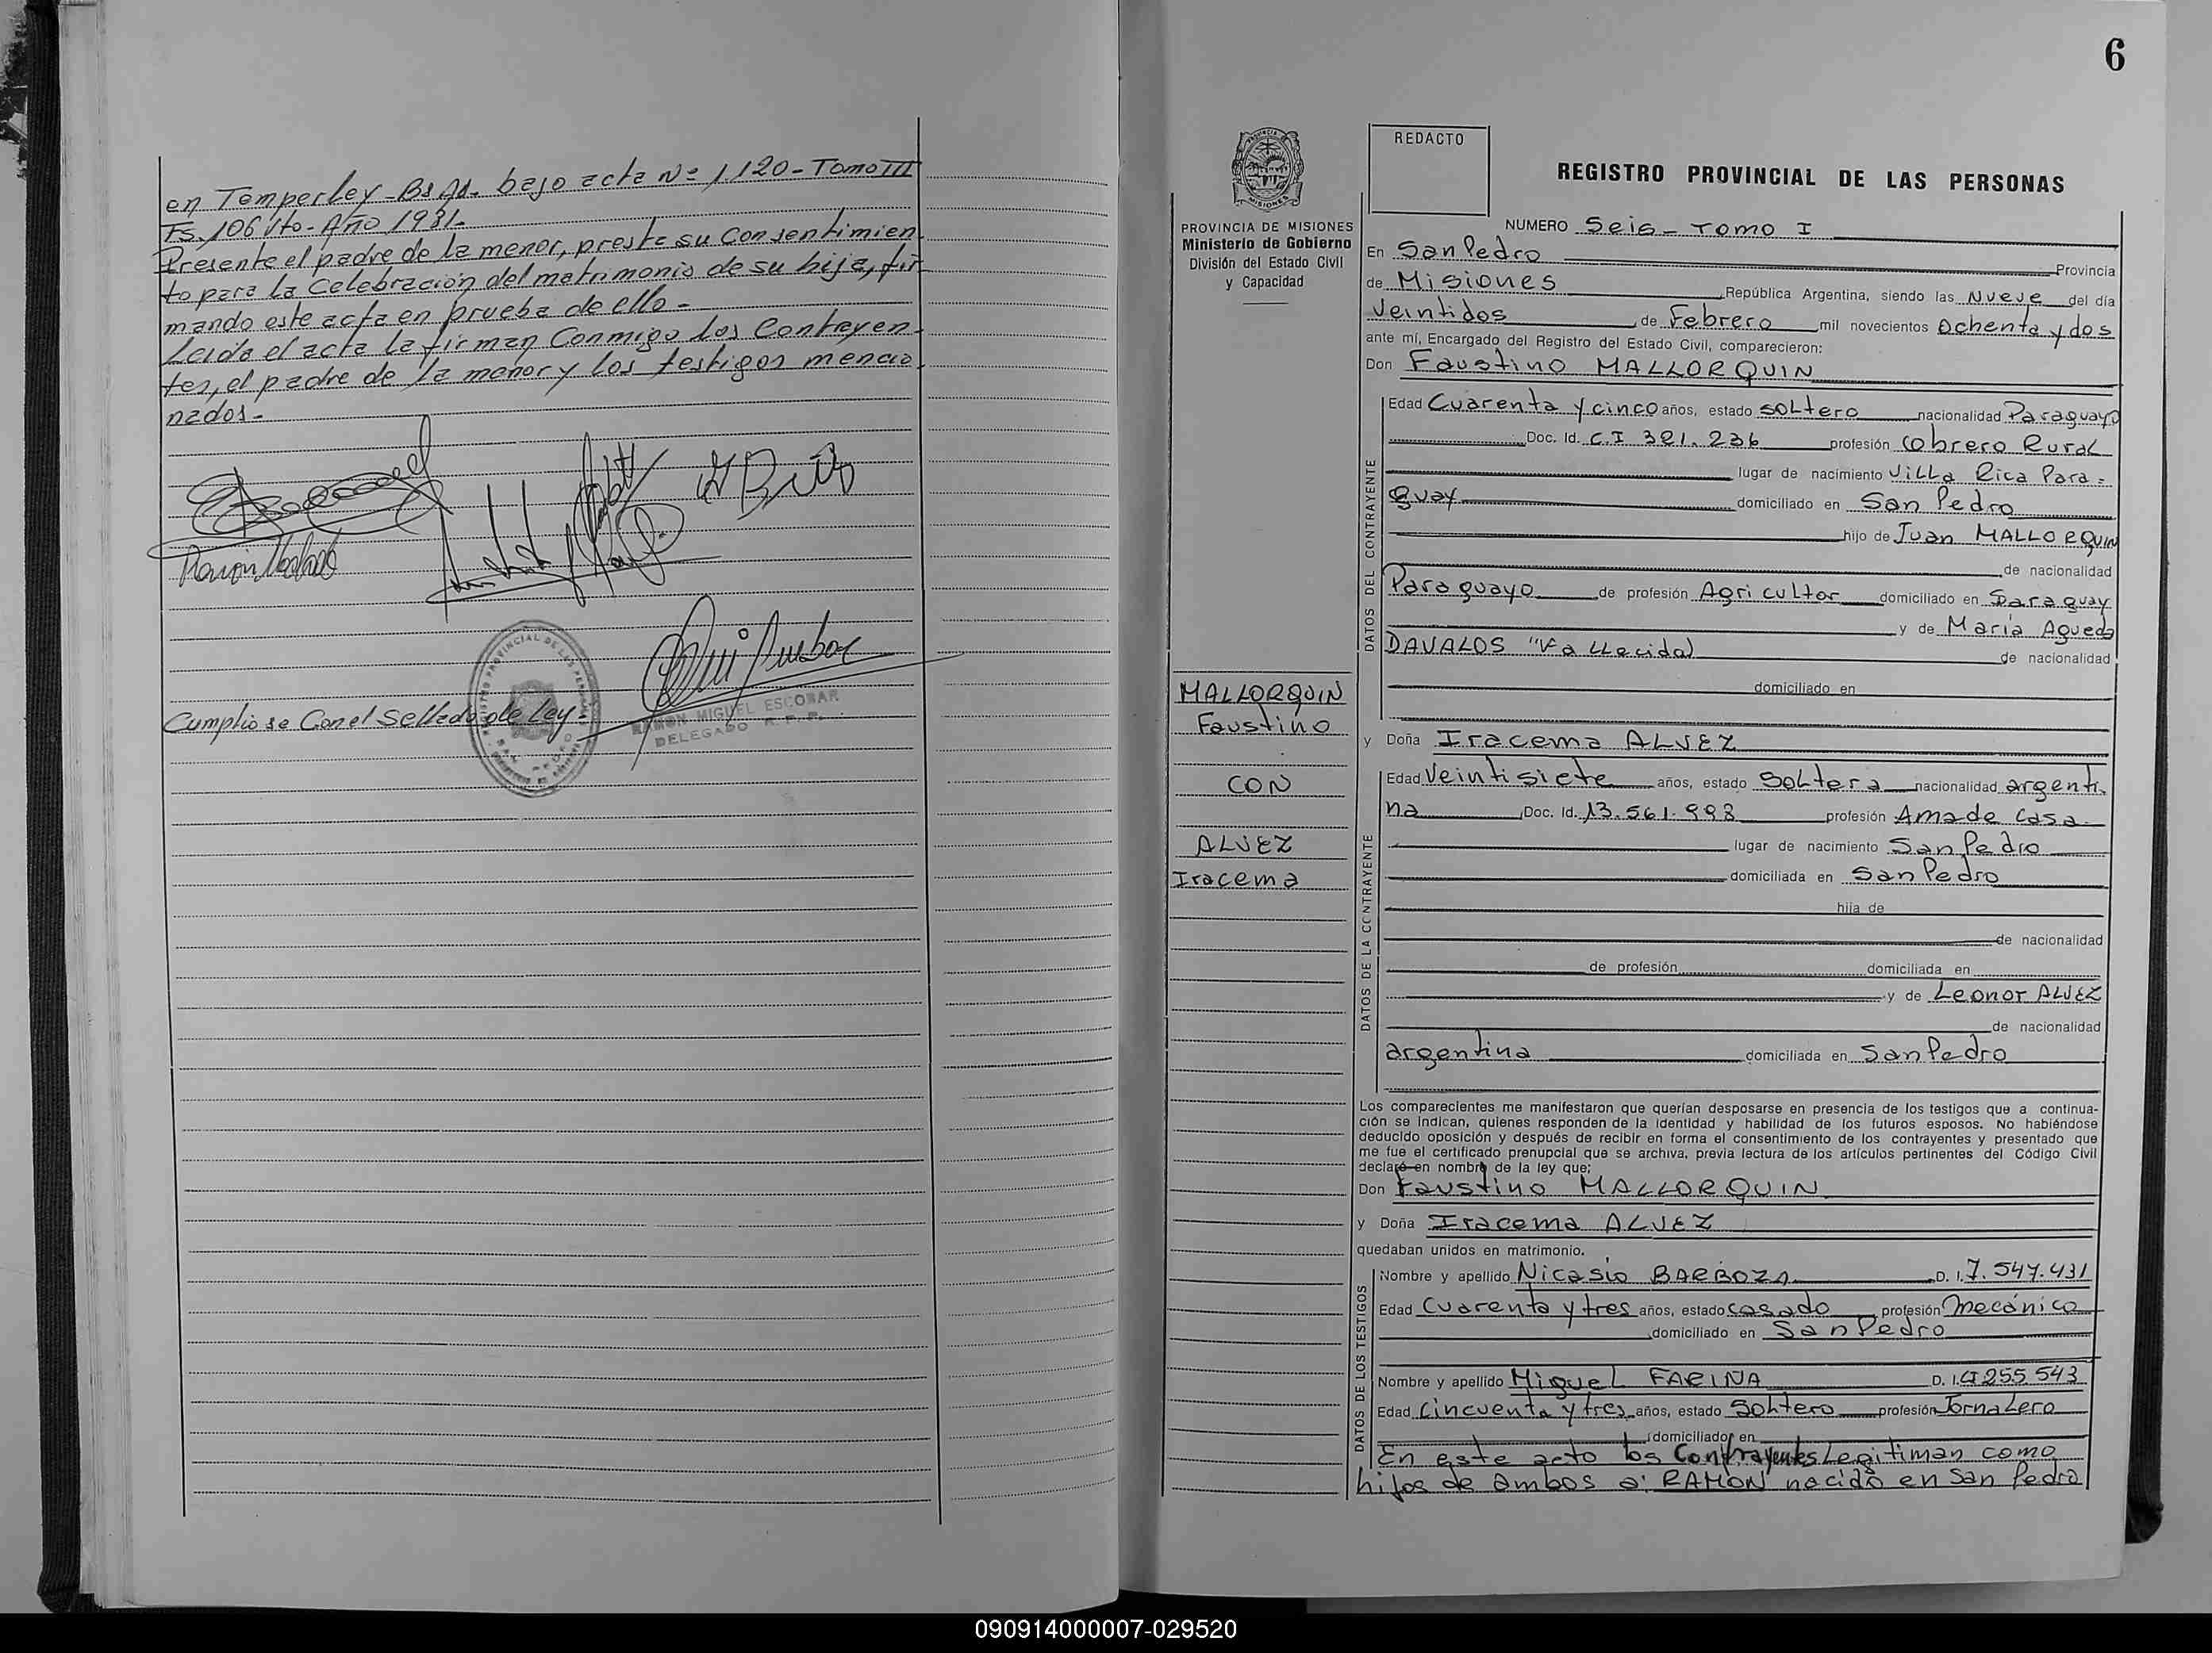 en Temperley - Bs As. bajo acta Nº 1.120 - Tomo III
Fs. 106 Vto - Año 1931.
Presente el padre de la menor, presta su consentimien
to para la Celebración del matrimonio de su hija, fir
mando este acta en prueba de ello -
Leída el acta la firman Conmigo los Contrayen
tes, el padre de la menor y los testigos mencio
nados -
Cumplio se Con el Sellado de Ley
RAMON MIGUEL ESCOBAR
DELEGADO R. P. P.
6
REDACTO
REGISTRO PROVINCIAL DE LAS PERSONAS
PROVINCIA DE MISIONES
Ministerio de Gobierno
División del Estado Civil
y Capacidad
NUMERO Seis - Tomo I
En San Pedro Provincia
de Misiones República Argentina, siendo las Nueve del día
Veintidos de Febrero mil novecientos Ochenta y dos
ante mí, Encargado del Registro del Estado Civil, comparecieron:
Don Faustino MALLORQUIN
DATOS DEL CONTRAYENTE
Edad Cuarenta y cinco años, estado soltero nacionalidad Paraguayo
Doc. Id. C.I 321.236 profesión Obrero Rural
lugar de nacimiento Villa Rica Para=
guay domiciliado en San Pedro
hijo de Juan MALLORQUIN
de nacionalidad
Paraguayo de profesión Agricultor domiciliado en Paraguay
y de María Agueda
DAVALOS "Fallecida) de nacionalidad
domiciliado en
MALLORQUIN
Faustino
CON
ALVEZ
Iracema
y Doña Iracema ALVEZ
DATOS DE LA CONTRAYENTE
Edad Veintisiete años, estado Soltera nacionalidad argenti-
na Doc. Id. 13.561.993 profesión Ama de Casa
lugar de nacimiento San Pedro
domiciliada en San Pedro
hija de
de nacionalidad
de profesión domiciliada en
y de Leonor ALVEZ
de nacionalidad
argentina domiciliada en San Pedro
Los comparecientes me manifestaron que querían desposarse en presencia de los testigos que a continua-
ción se indican, quienes responden de la identidad y habilidad de los futuros esposos. No habiéndose
deducido oposición y después de recibir en forma el consentimiento de los contrayentes y presentado que
me fue el certificado prenupcial que se archiva, previa lectura de los artículos pertinentes del Código Civil
declaré en nombre de la ley que:
Don Faustino MALLORQUIN
y Doña Iracema ALVEZ
quedaban unidos en matrimonio.
DATOS DE LOS TESTIGOS
Nombre y apellido Nicasio BARBOZA D. I. 7.547.431
Edad Cuarenta y tres años, estado casado profesión Mecánico
domiciliado en San Pedro
Nombre y apellido Miguel FARINA D. I. CI 255.543
Edad Cincuenta y tres años, estado Soltero profesión Jornalero
domiciliado en
En este acto los Contrayentes Legitiman como
hijos de ambos a: RAMON nacido en San Pedro
090914000007-029520